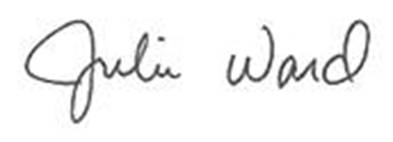 Julie Ward